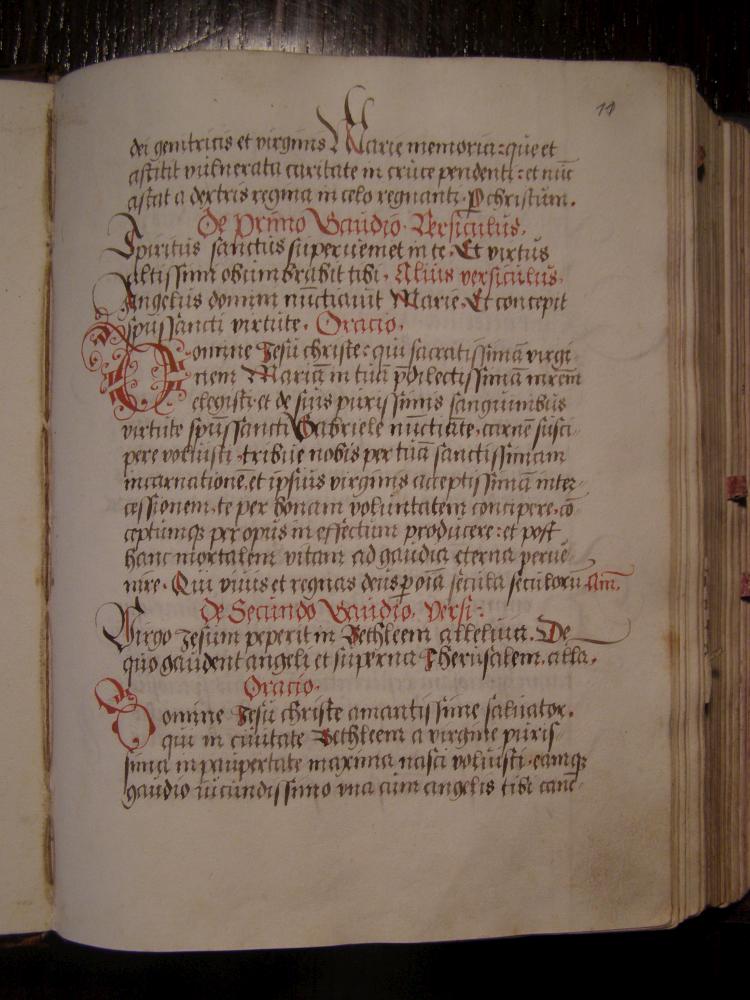 11
dei genitricis et virginis Marie memoria: que et
astitit vulnerata caritate in cruce pendenti: et nūc
astat a dextris regina in celo regnanti. P christum.
De Primo Gaudio. Versiculus.
Spiritus sanctus superveniet in te. Et virtus
altissimi obumbrabit tibi. Alius versiculus.
Angelus domini nūctiavit Marie. Et concepit
spūssancti virtute. Oracio.
Domine Jesu christe: qui sacratissimā virgi-
nem Mariā in tuā p̄dilectissimā mrēm
elegisti: et de suis purissimis sanguinibus
virtute spūssancti Gabriele nūctiāte, carnē susci-
pere voluisti. tribue nobis per tuā sanctissimam
incarnationē, et ipsius virginis acceptissimā inter-
cessionem, te per bonam voluntatem concipere, cō-
ceptumqꝫ per opus in effectum producere: et post
hanc mortalem vitam ad gaudia eterna perve-
nire. Qui vivis et regnas deus p oīa secula seculorū Am̄.
De Secundo Gaudio. Versi:
Virgo Jesum peperit in Bethleem alleluia. De
quo gaudent angeli et superna Jherusalem. alla.
Oracio.
Domine Jesu christe amantissime salvator.
qui in civitate Bethleem a virgine puris-
sima in paupertate maxima nasci voluisti. eamqꝫ
gaudio iucundissimo vna cum angelis tibi canē-